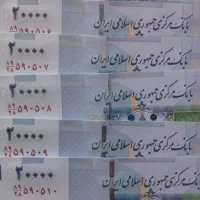 ۲۰۰۰۰ بانک مرکزی جمهوری اسلامی ایران
۸۹/۲۸ ۵۹۰۵۰۶
۲۰۰۰۰ بانک مرکزی جمهوری اسلامی ایران
۸۹/۲۸ ۵۹۰۵۰۷
۲۰۰۰۰ بانک مرکزی جمهوری اسلامی ایران
۸۹/۲۸ ۵۹۰۵۰۸
۲۰۰۰۰ بانک مرکزی جمهوری اسلامی ایران
۸۹/۲۸ ۵۹۰۵۰۹
۲۰۰۰۰ بانک مرکزی جمهوری اسلامی ایران
۸۹/۲۸ ۵۹۰۵۱۰